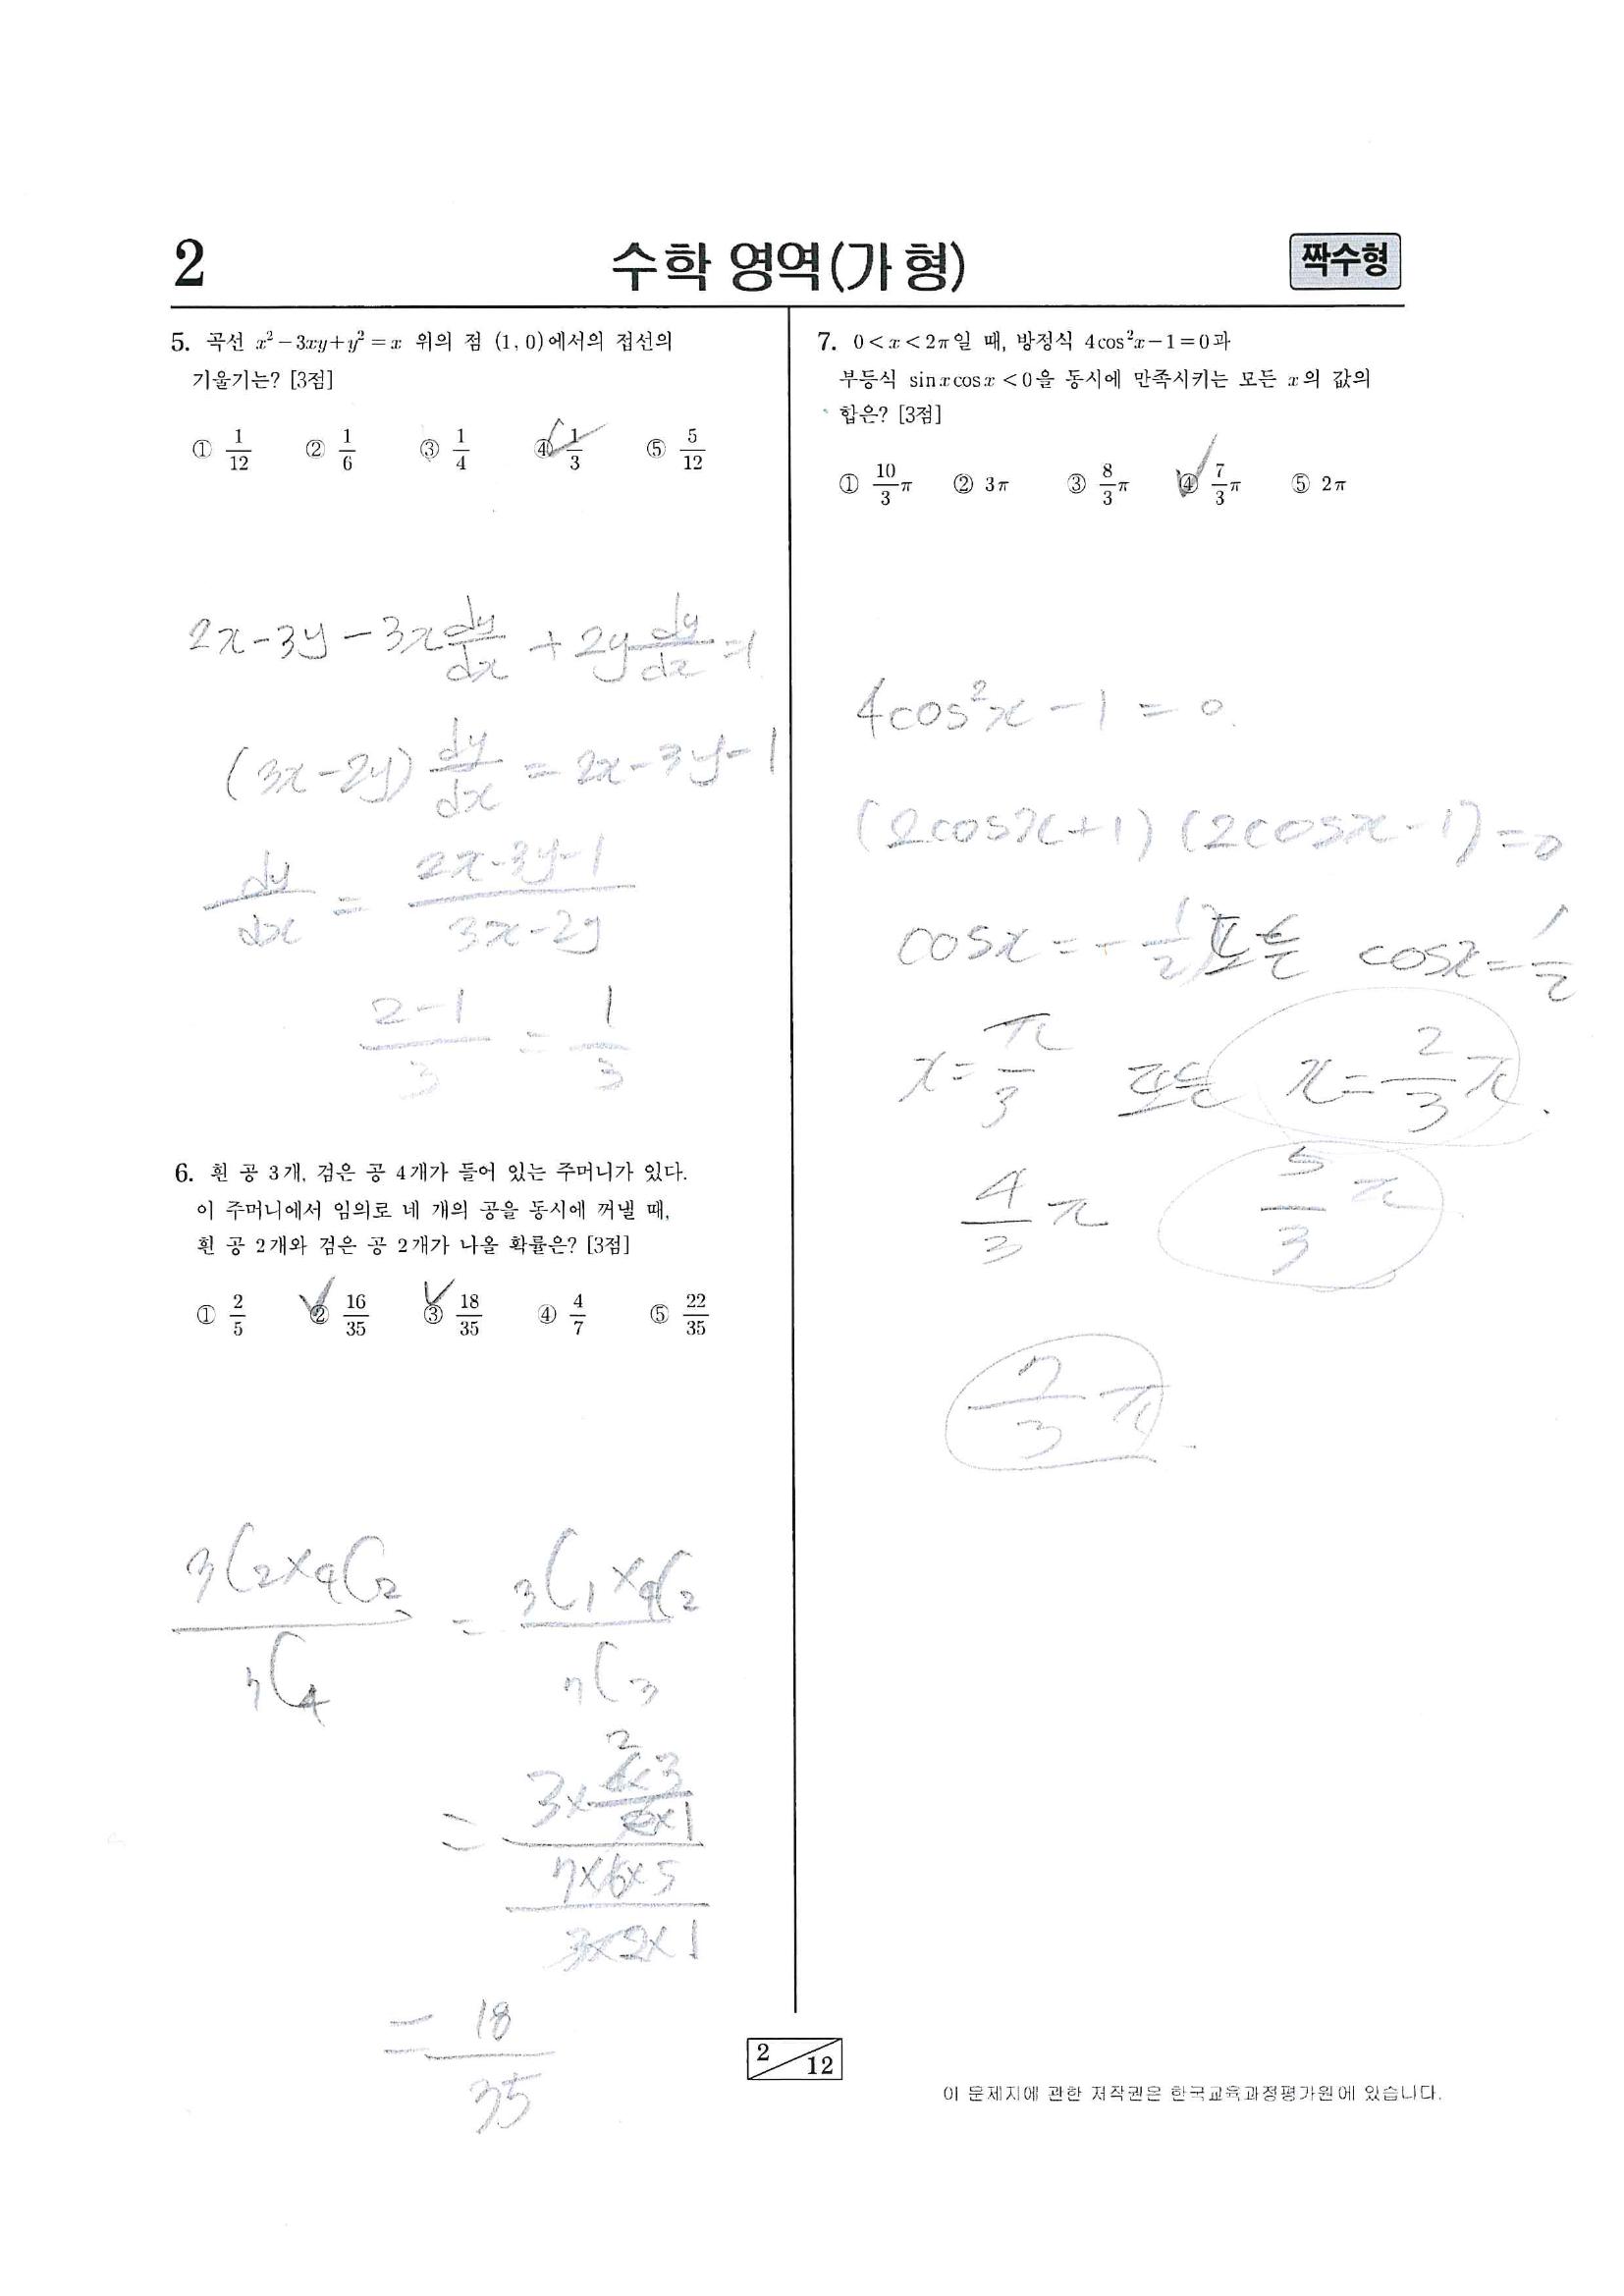 2
수학 영역(가 형)
짝수형
5. 곡선 x²-3xy+y²=x 위의 점 (1, 0)에서의 접선의
기울기는? [3점]
① 1/12 ② 1/6 ③ 1/4 ④ 1/3 ⑤ 5/12
2x-3y-3x dy/dx + 2y dy/dx = 1
(3x-2y) dy/dx = 2x-3y-1
dy/dx = (2x-3y-1)/(3x-2y)
(2-1)/3 = 1/3
6. 흰 공 3개, 검은 공 4개가 들어 있는 주머니가 있다.
이 주머니에서 임의로 네 개의 공을 동시에 꺼낼 때,
흰 공 2개와 검은 공 2개가 나올 확률은? [3점]
① 2/5 ② 16/35 ③ 18/35 ④ 4/7 ⑤ 22/35
(3C2×4C2)/7C4 = (3C1×4C2)/7C3
= (3×(4×3)/(2×1))/((7×6×5)/(3×2×1))
= 18/35
7. 0<x<2π일 때, 방정식 4cos²x-1=0과
부등식 sinxcosx<0을 동시에 만족시키는 모든 x의 값의
합은? [3점]
① 10/3π ② 3π ③ 8/3π ④ 7/3π ⑤ 2π
4cos²x-1=0
(2cosx+1)(2cosx-1)=0
cosx=-1/2 또는 cosx=1/2
x=π/3 또는 x=2/3π
4/3π 5/3π
7/3π
2/12
이 문제지에 관한 저작권은 한국교육과정평가원에 있습니다.